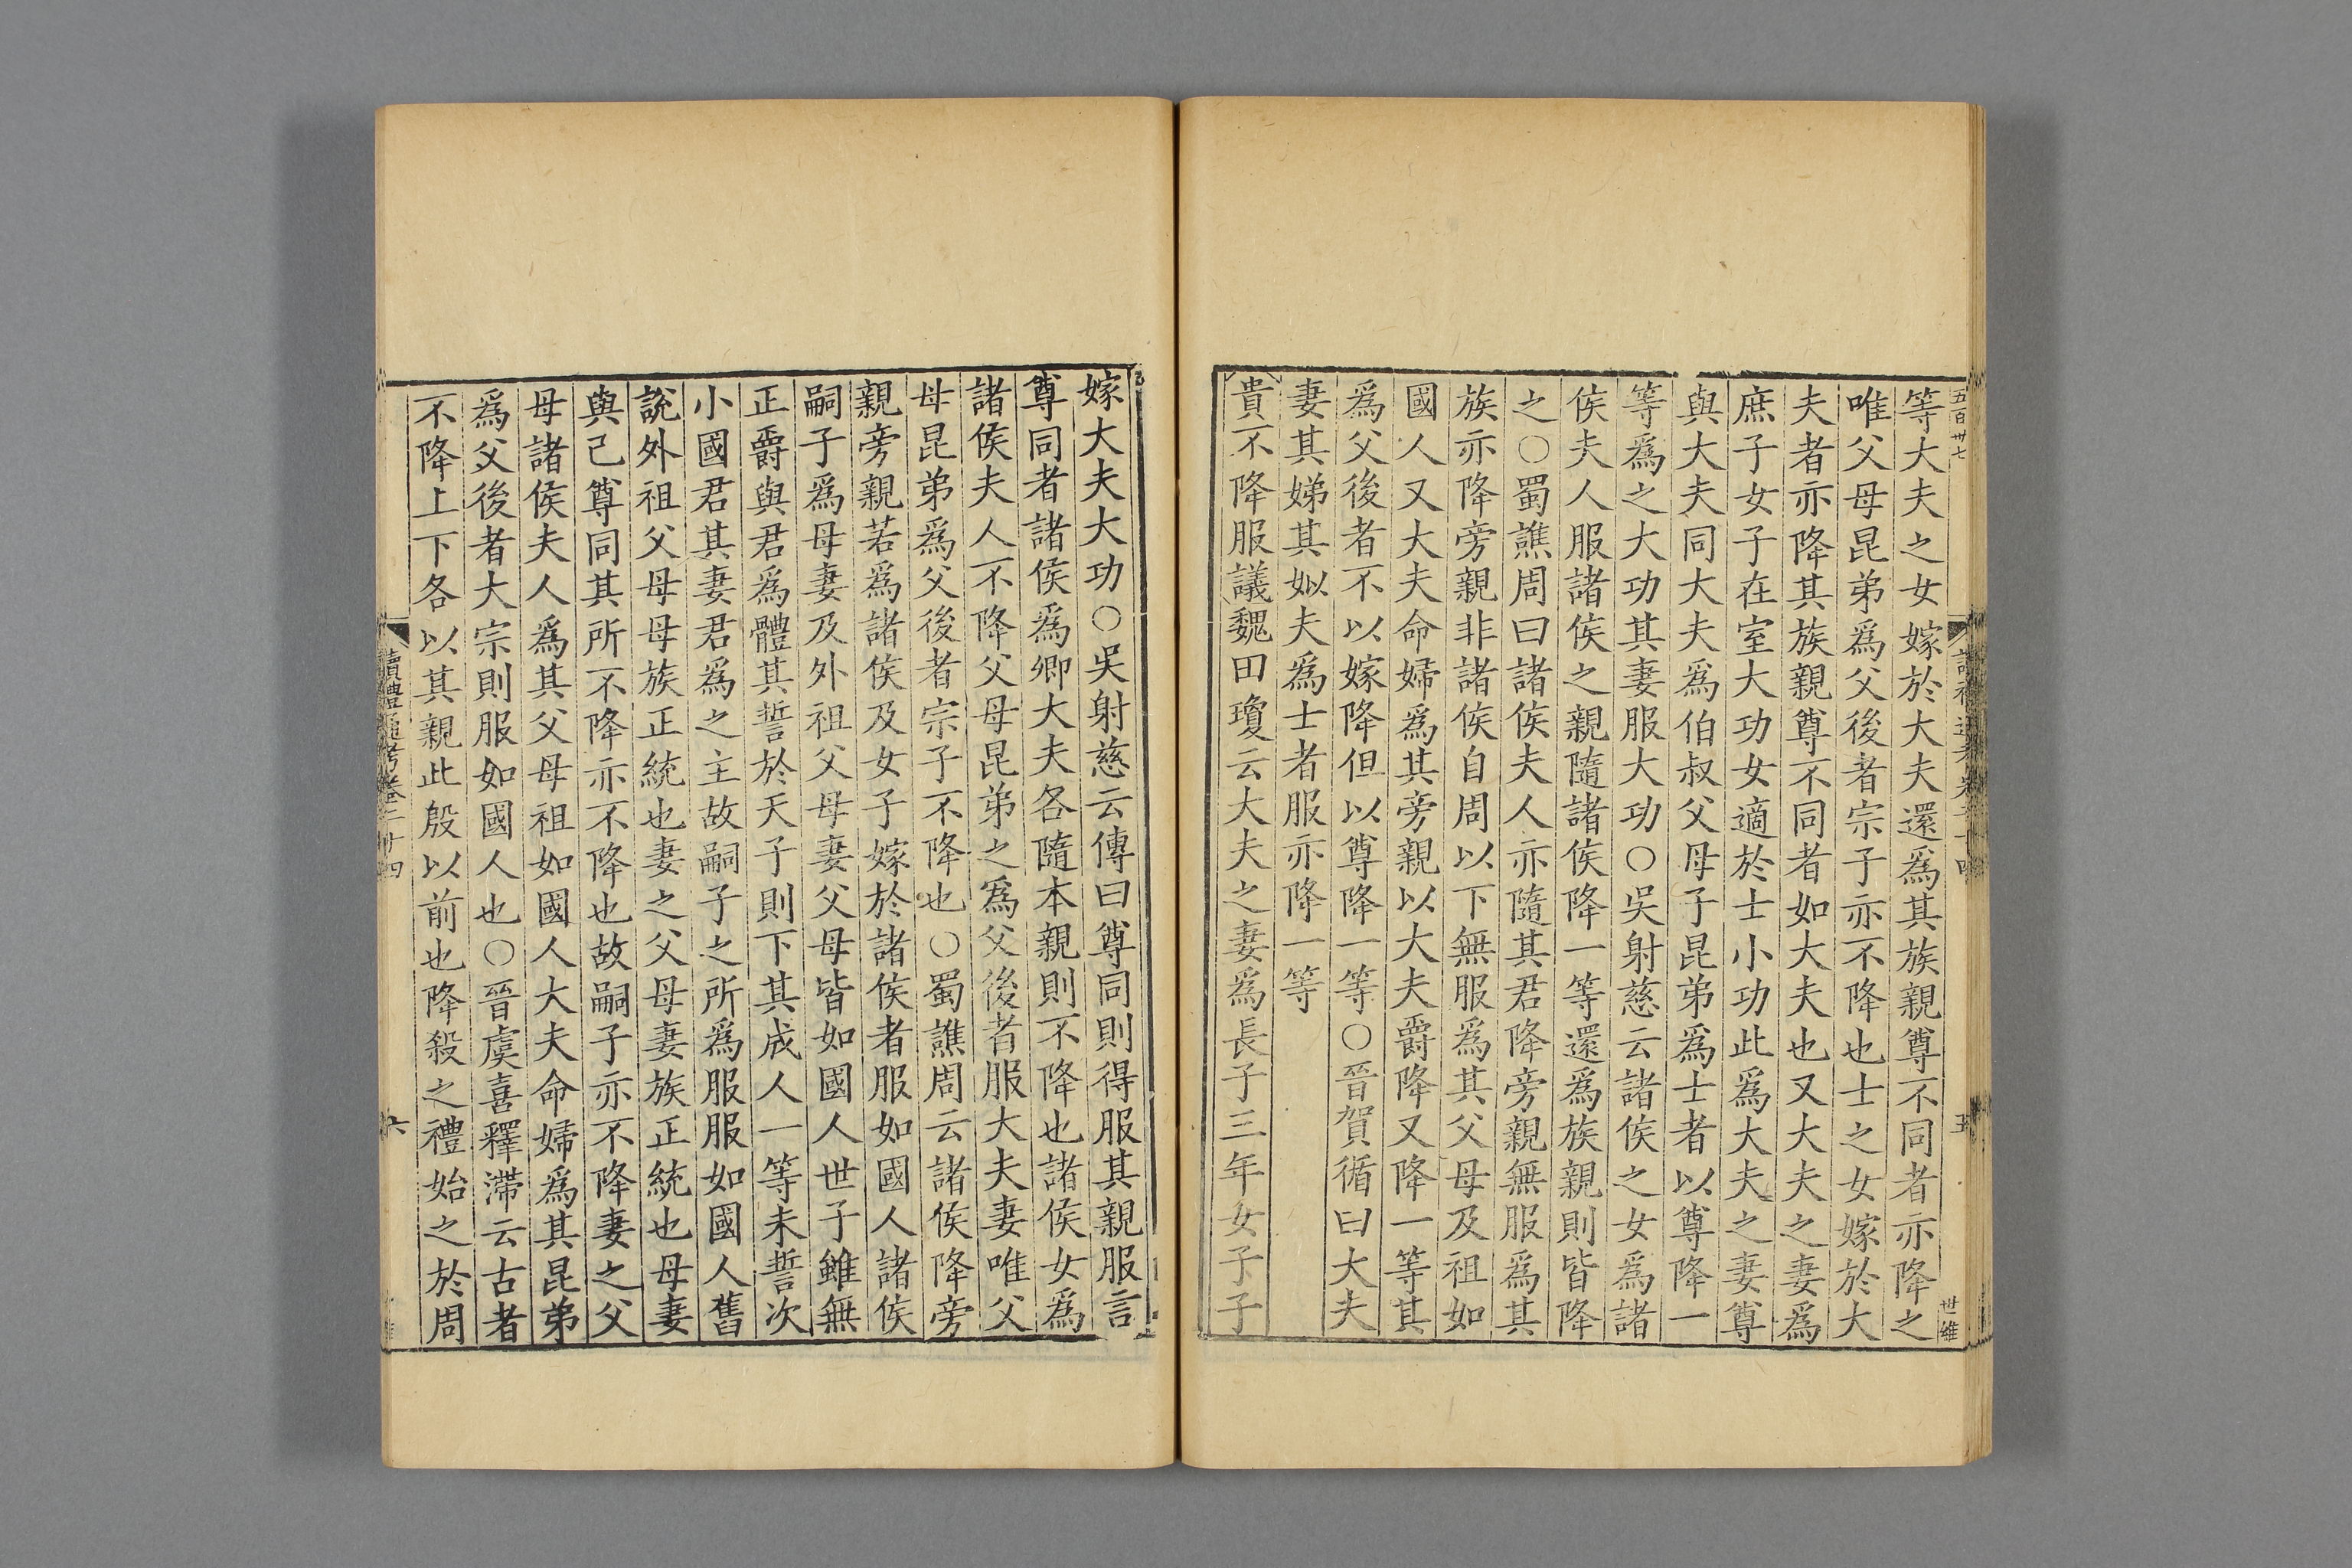 五百卅七
等大夫之女嫁於大夫還爲其族親尊不同者亦降之
唯父母昆弟爲父後者宗子亦不降也士之女嫁於大
夫者亦降其族親尊不同者如大夫也又大夫之妻爲
庶子女子在室大功女適於士小功此爲大夫之妻尊
與大夫同大夫爲伯叔父母子昆弟爲士者以尊降一
等爲之大功其妻服大功○吳射慈云諸侯之女爲諸
侯夫人服諸侯之親隨諸侯降一等還爲族親則皆降
之○蜀譙周曰諸侯夫人亦隨其君降旁親無服爲其
族亦降旁親非諸侯自周以下無服爲其父母及祖如
國人又大夫命婦爲其旁親以大夫爵降又降一等其
爲父後者不以嫁降但以尊降一等○晉賀循曰大夫
妻其娣其姒夫爲士者服亦降一等
貴不降服議魏田瓊云大夫之妻爲長子三年女子子
嫁大夫大功○吳射慈云傳曰尊同則得服其親服言
尊同者諸侯爲卿大夫各隨本親則不降也諸侯女爲
諸侯夫人不降父母昆弟之爲父後者服大夫妻唯父
母昆弟爲父後者宗子不降也○蜀譙周云諸侯降旁
親旁親若爲諸侯及女子嫁於諸侯者服如國人諸侯
嗣子爲母妻及外祖父母妻父母皆如國人世子雖無
正爵與君爲體其誓於天子則下其成人一等未誓次
小國君其妻君爲之主故嗣子之所爲服服如國人舊
說外祖父母母族正統也妻之父母妻族正統也母妻
與己尊同其所不降亦不降也故嗣子亦不降妻之父
母諸侯夫人爲其父母祖如國人大夫命婦爲其昆弟
爲父後者大宗則服如國人也○晉虞喜釋滯云古者
不降上下各以其親此殷以前也降殺之禮始之於周
讀禮通考卷二十四
六